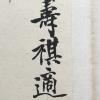 壽祺適